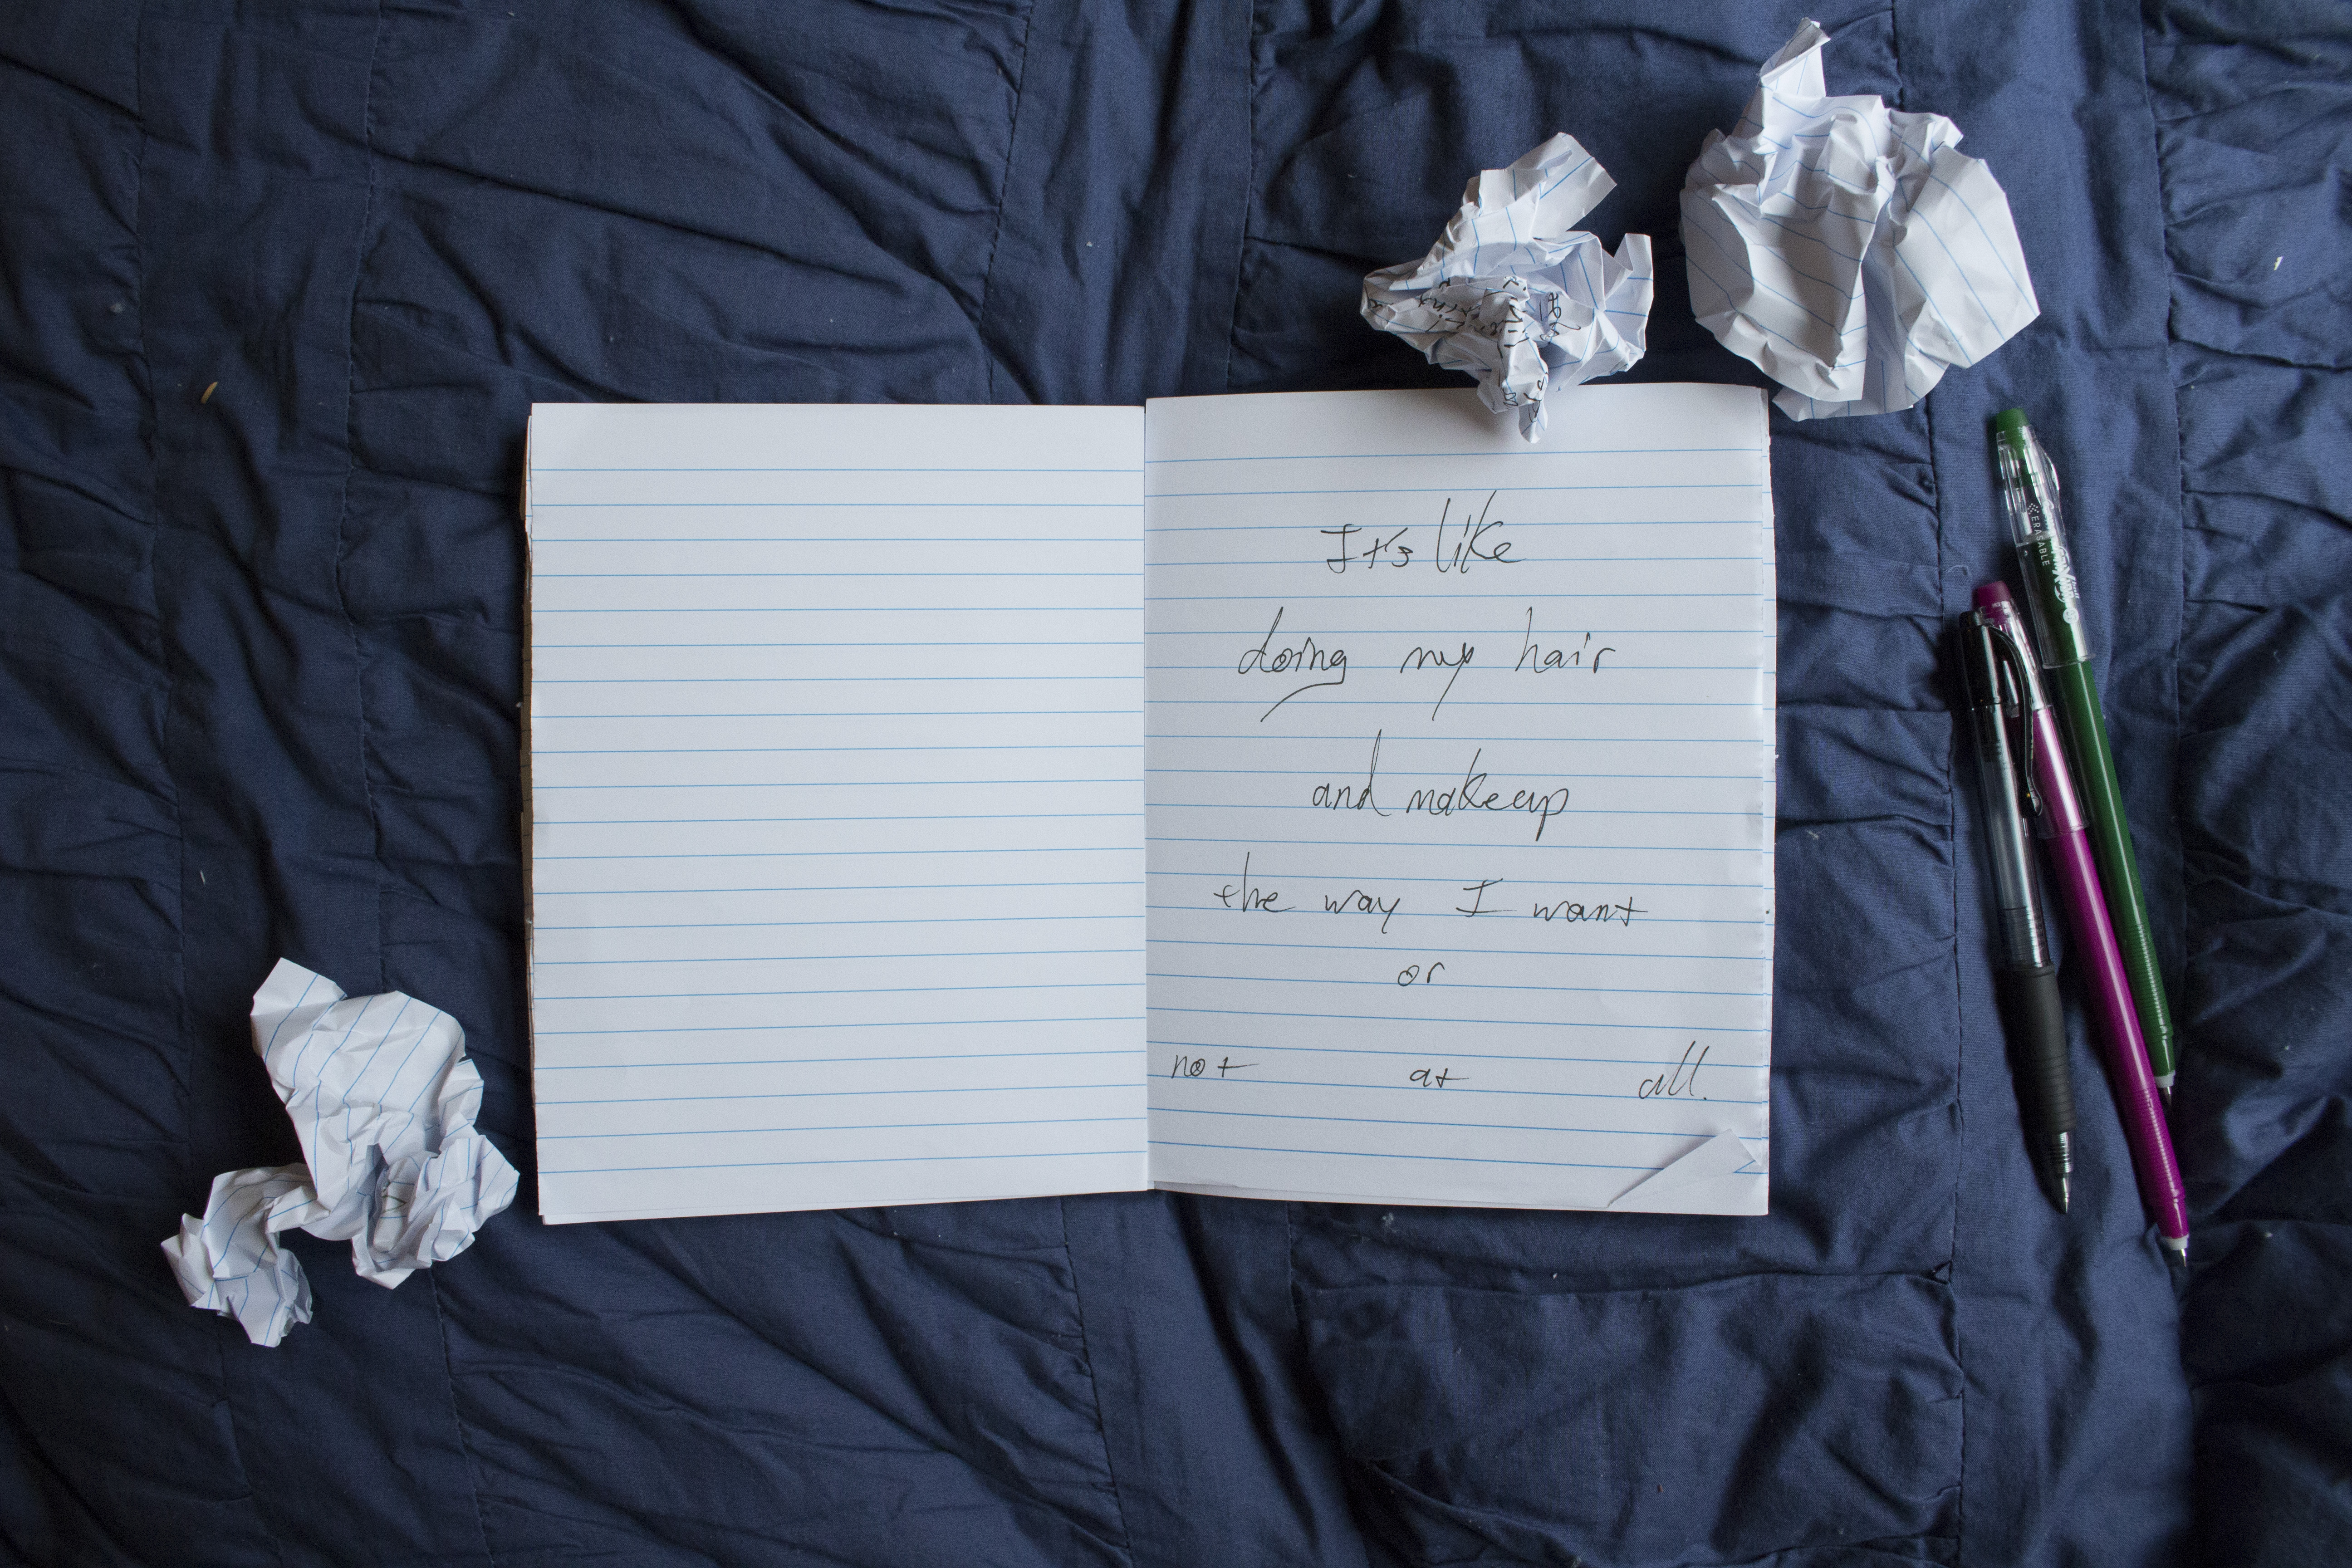 It's like
doing my hair
and makeup
the way I want
or
not at all.
ERASABLE